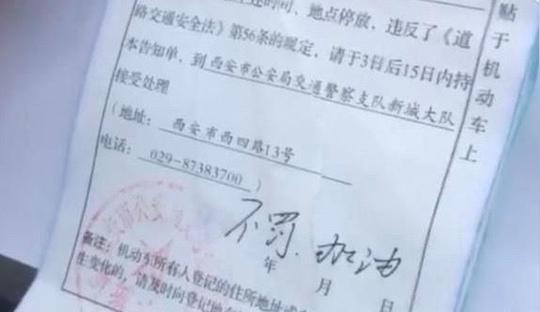 时间、地点停放，违反了《道
路交通安全法》第56条的规定，请于3日后15日内持
本告知单，到西安市公安局交通警察支队新城大队
接受处理
（地址：西安市西四路13号
电话：029-87383700）
不罚.加油
年 月 日
备注：机动车所有人登记的住所地址或
生变化的，请及时向登记地
贴于机动车上